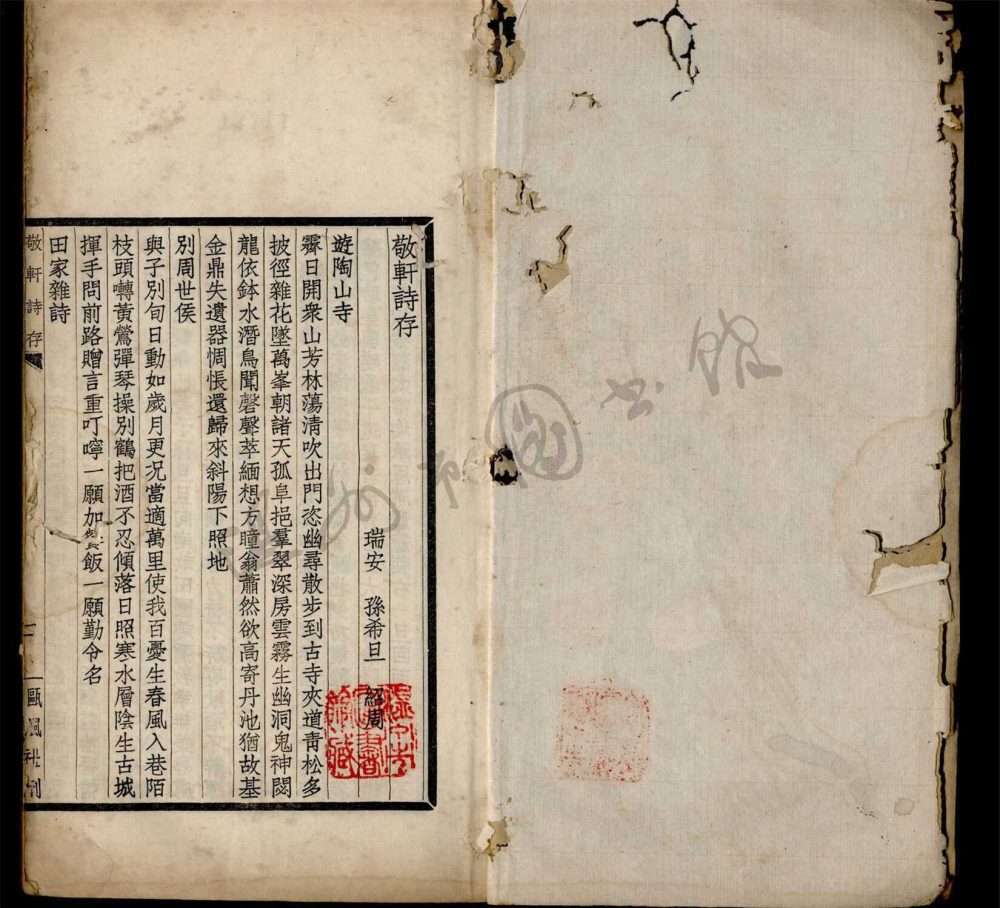 敬軒詩存
瑞安 孫希旦 紹周
遊陶山寺
霽日開衆山芳林蕩清吹出門恣幽尋散步到古寺夾道靑松多
披徑雜花墜萬峯朝諸天孤阜挹羣翠深房雲霧生幽洞鬼神閟
龍依鉢水潛鳥聞磬聲萃緬想方瞳翁蕭然欲高寄丹池猶故基
金鼎失遺器惆悵還歸來斜陽下照地
別周世侯
與子別旬日動如歲月更况當適萬里使我百憂生春風入巷陌
枝頭囀黃鶯彈琴操別鶴把酒不忍傾落日照寒水層陰生古城
揮手問前路贈言重叮嚀一願加飯一願勤令名
田家雜詩
敬軒詩存
一
甌風社刊
溫州市圖書館